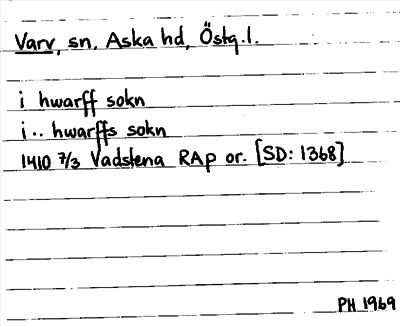 Varv, sn, Aska hd, Östg.l.
i hwarff sokn
i.. hwarffs sokn
1410 7/3 Vadstena RAp or. [SD: 1368]
PH 1969